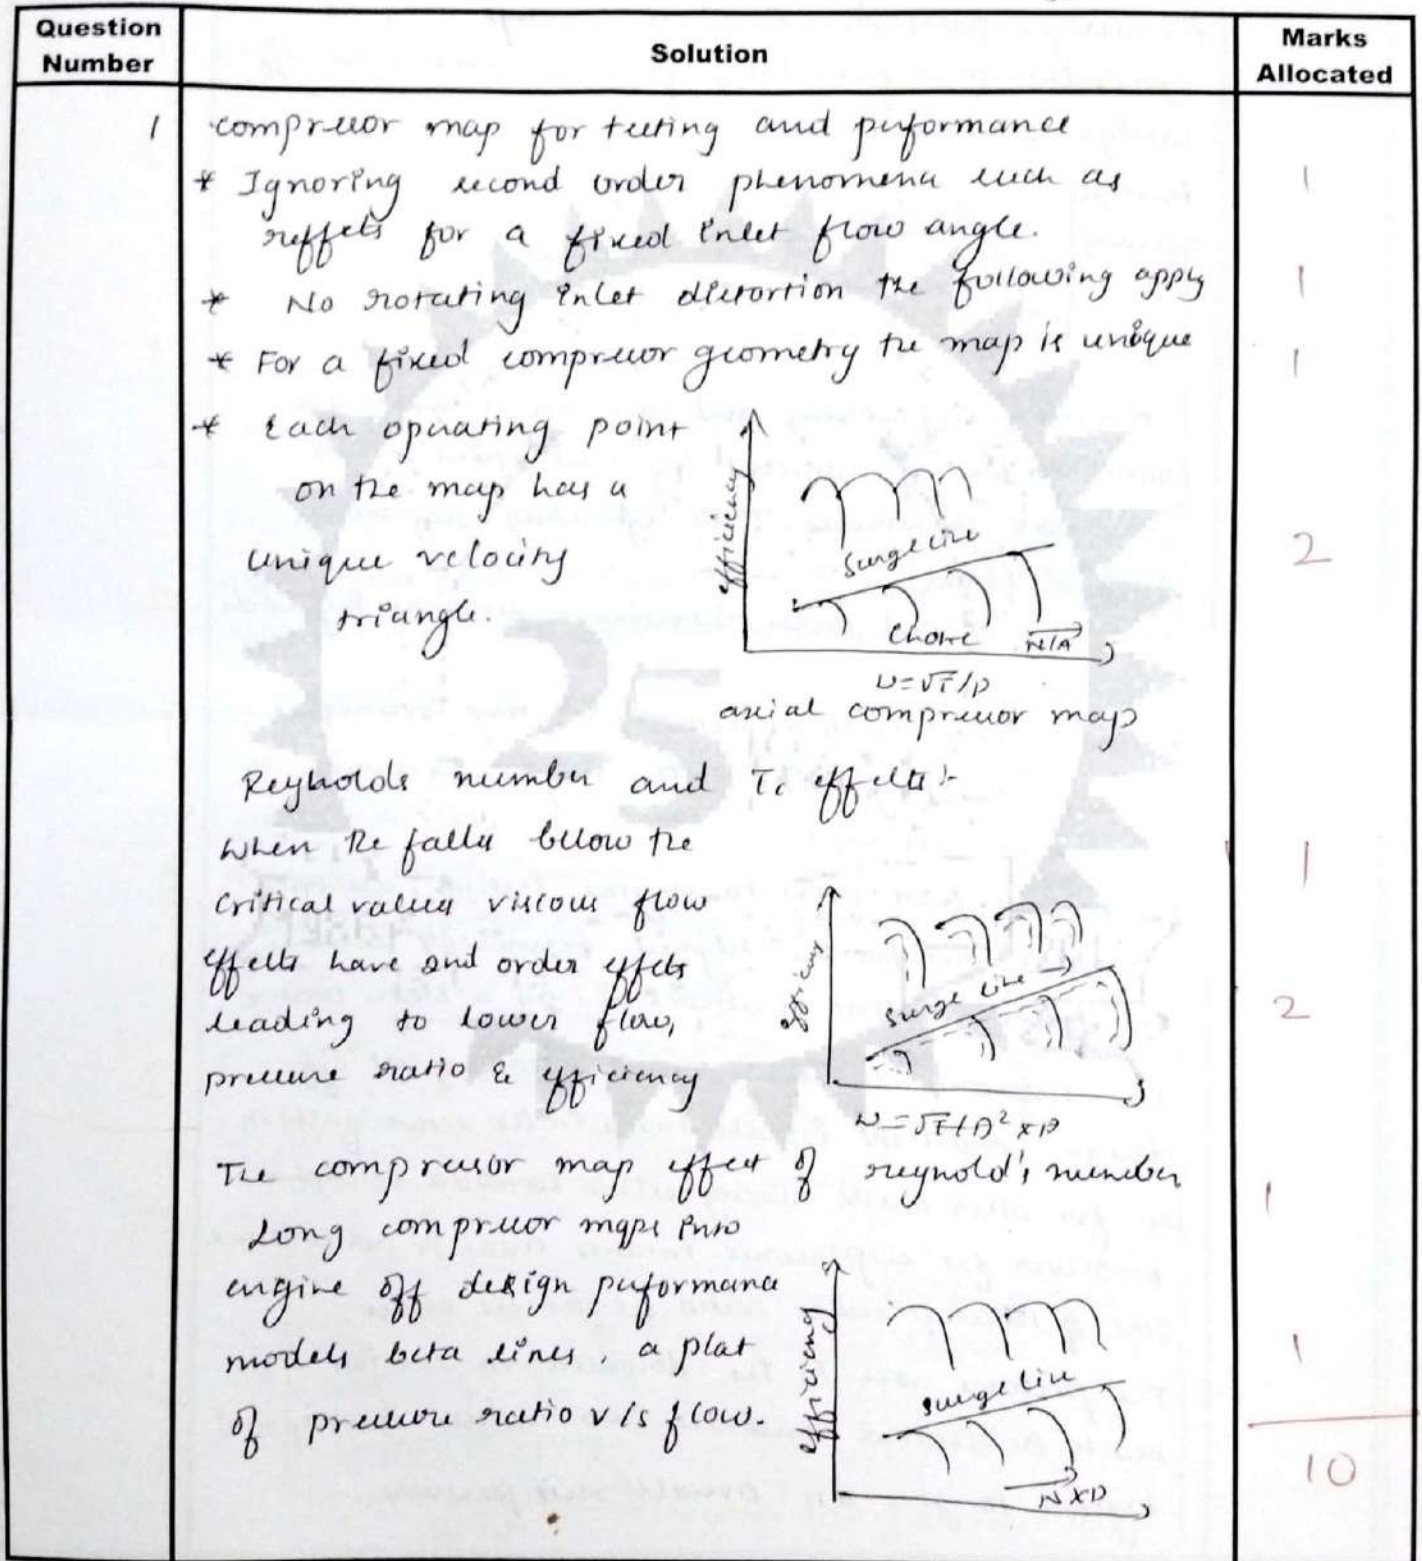 Question Number
Solution
Marks Allocated
1
compressor map for testing and performance
* Ignoring second order phenomena such as
1
reffets for a fixed inlet flow angle.
* No rotating inlet distortion the following apply
1
* For a fixed compressor geometry the map is unique
1
* Each operating point
on the map has a
unique velocity
triangle.
2
efficiency
Surge line
Choke
N/A
axial compressor map
Reynolds number and effects :-
when Re falls bellow the
1
critical values viscous flow
effects have 2nd order effets
leading to lower flow,
pressure ratio & efficiency
2
efficiency
Surge line
The compressor map effect of reynold's number
1
Long compressor maps into
engine off design performance
models beta lines. a plat
1
of pressure ratio v/s flow.
efficiency
surge line
N x D
10
25